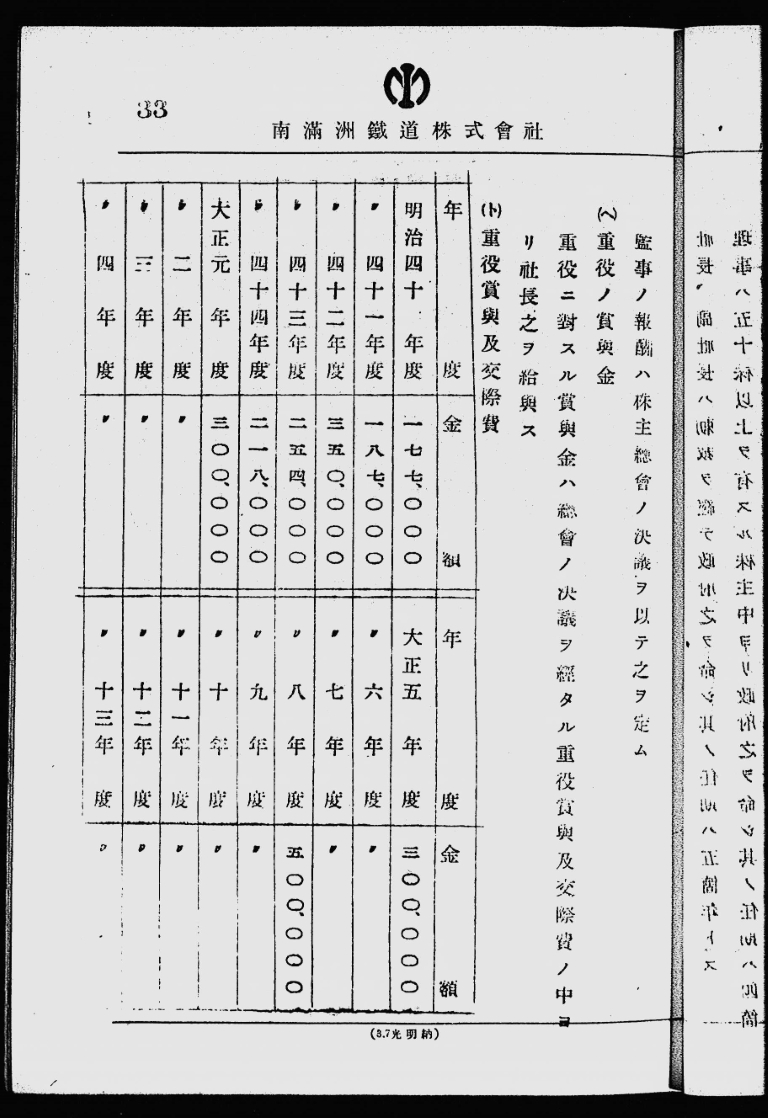 33
南滿洲鐵道株式會社
監事ノ報酬ハ株主總會ノ決議ヲ以テ之ヲ定ム
(ヘ)重役ノ賞與金
重役ニ對スル賞與金ハ總會ノ決議ヲ經タル重役賞與及交際費ノ中ヨ
リ社長之ヲ給與ス
(ト)重役賞與及交際費
年度 金額
明治四十年度 一七七、〇〇〇
〃四十一年度 一八七、〇〇〇
〃四十二年度 三五〇、〇〇〇
〃四十三年度 二五四、〇〇〇
〃四十四年度 二一八、〇〇〇
大正元年度 三〇〇、〇〇〇
〃二年度 〃
〃三年度 〃
〃四年度 〃
年度 金額
大正五年度 三〇〇、〇〇〇
〃六年度 〃
〃七年度 〃
〃八年度 五〇〇、〇〇〇
〃九年度 〃
〃十年度 〃
〃十一年度 〃
〃十二年度 〃
〃十三年度 〃
(3.7光明納)
理事ハ五十株以上ヲ有スル株主中ヨリ政府之ヲ命シ其ノ任期ハ四箇
社長、副社長ハ勅裁ヲ經テ政府之ヲ命シ其ノ任期ハ五箇年トス